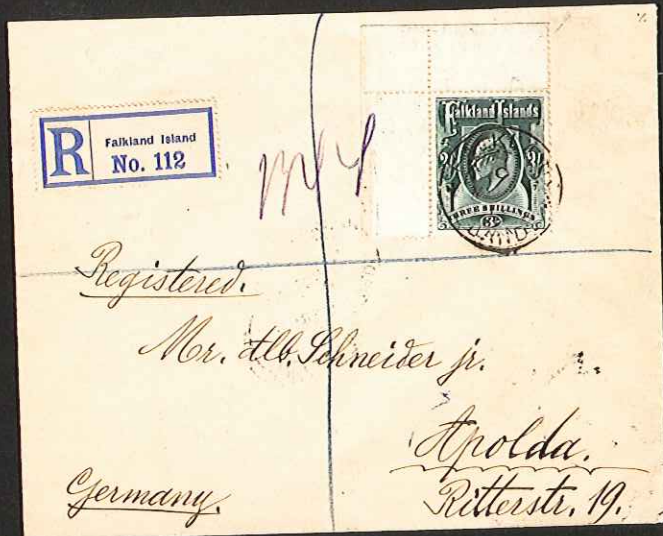 R
Falkland Island
No. 112
Falkland Islands
3/ 3/
THREE SHILLINGS
3/
Registered.
Mr. Alb. Schneider jr.
Apolda.
Ritterstr. 19.
Germany.